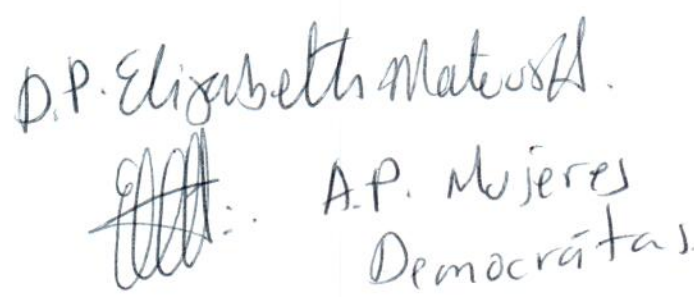 D.P. Elizabeth Mateus H.
A.P. Mujeres
Democrátas.